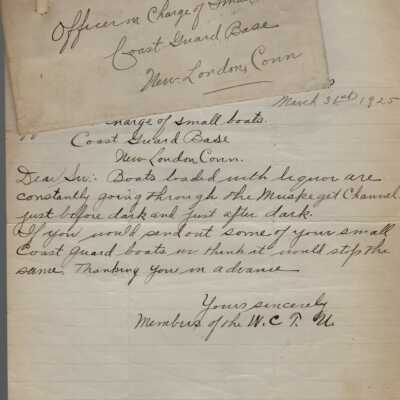 Officer in Charge of Small
Coast Guard Base
New London, Conn
March 31st 1925
To
harge of small boats.
Coast Guard Base
New London Conn.
Dear Sir: Boats loaded with liquor are
constantly going through the Muskeget Channel
just before dark and just after dark.
If you would send out some of your small
Coast guard boats we think it would stop the
same. Thanking you in advance
Yours sincerely
Members of the W. C. T. U.